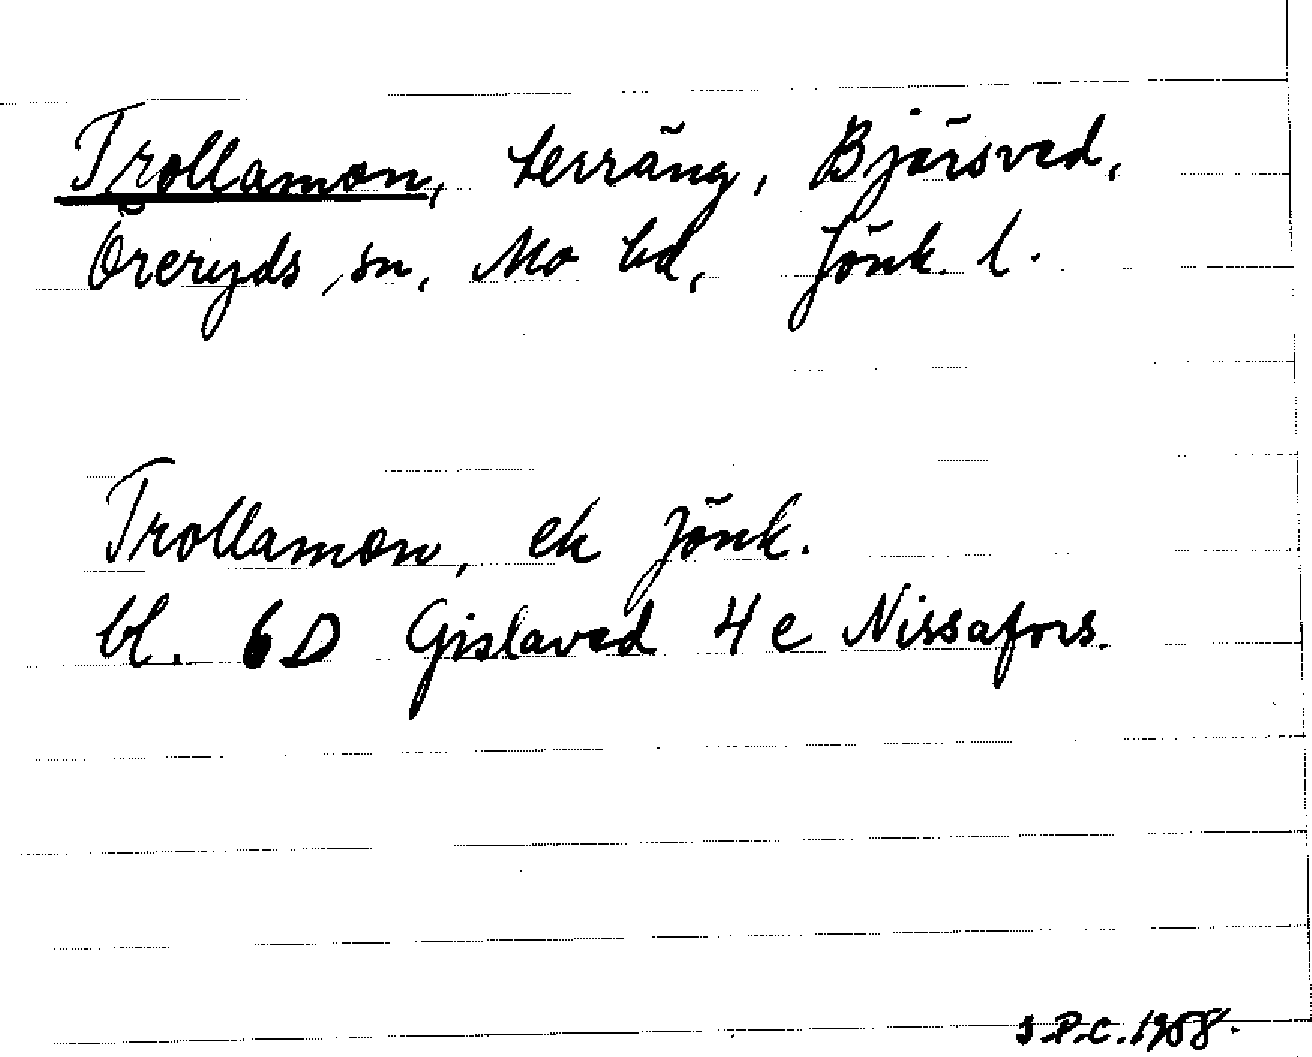 Trollamon, terräng, Bjärsved,
Öreryds sn, Mo hd, Jönk. l.
Trollamon, ek Jönk.
bl. 6D Gislaved 4 e Nissafors.
S.P.C. 1968.